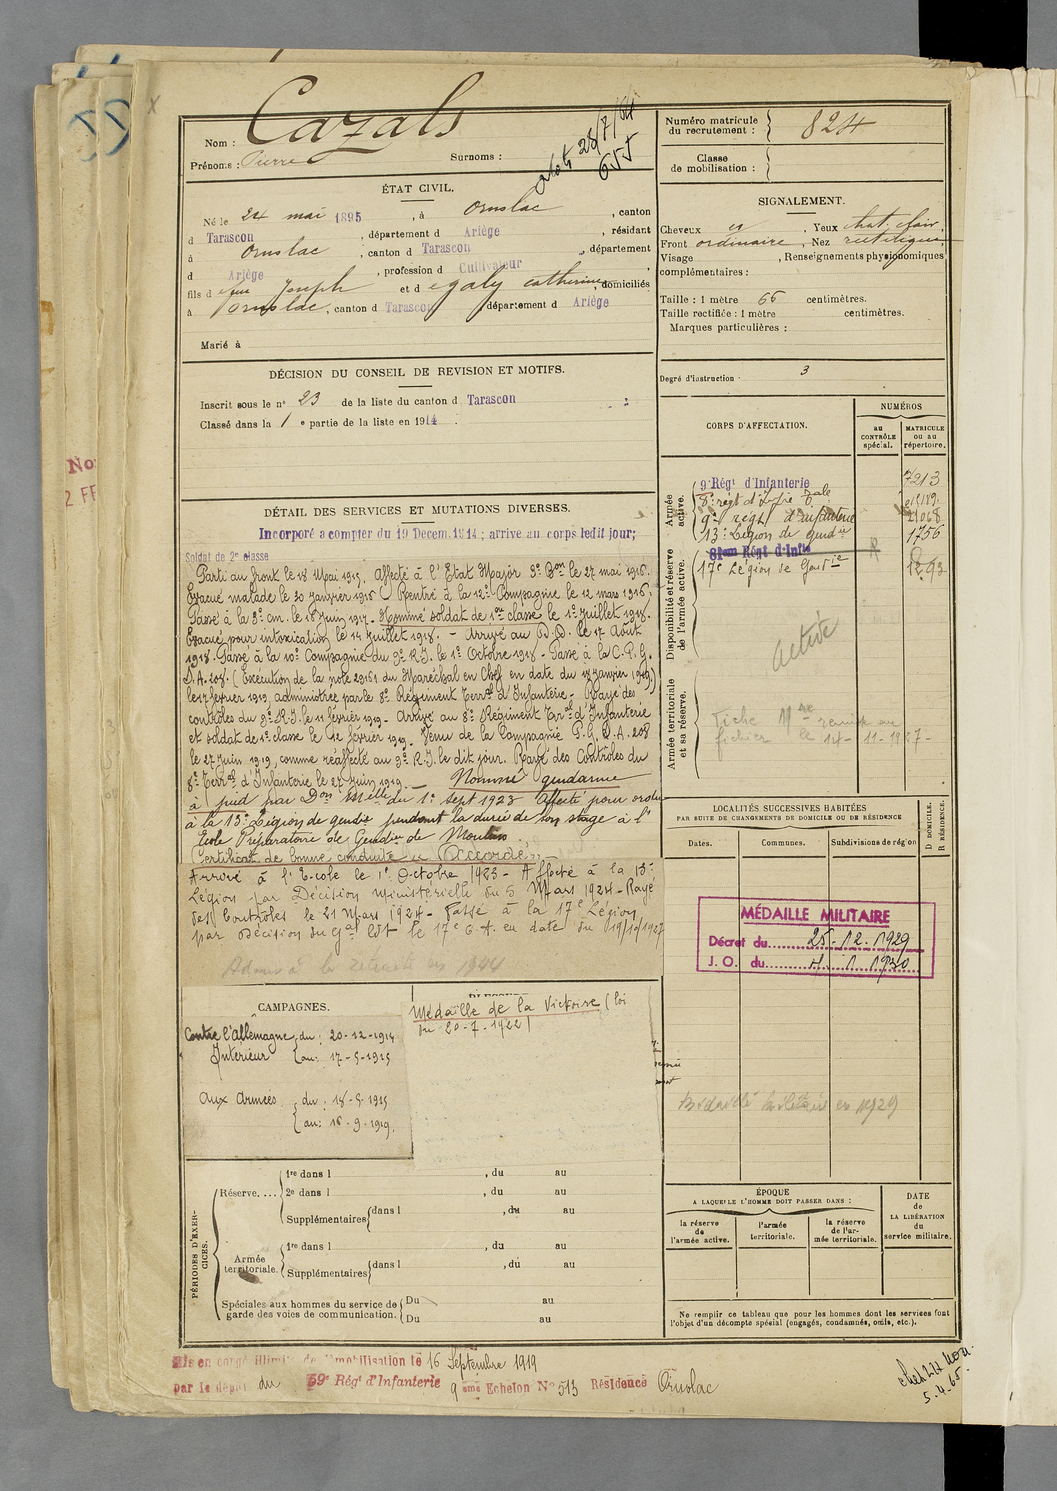 Nom : Cazals
Prénoms : Pierre
Surnoms :
28/7/64
655
Numéro matricule du recrutement : 824
Classe de mobilisation :
ÉTAT CIVIL.
Né le 24 mai 1895, à Ornolac, canton
d Tarascon, département d Ariège, résidant
à Ornolac, canton d Tarascon, département
d Ariège, profession d Cultivateur,
fils d feu Joseph et d egaly catherine, domiciliés
à Ornolac, canton d Tarascon, département d Ariège
Marié à
SIGNALEMENT.
Cheveux Yeux chat. clair,
Front ordinaire, Nez rectiligne,
Visage , Renseignements physionomiques
complémentaires :
Taille : 1 mètre 66 centimètres.
Taille rectifiée : 1 mètre centimètres.
Marques particulières :
Degré d'instruction : 3
DÉCISION DU CONSEIL DE REVISION ET MOTIFS.
Inscrit sous le n° 23 de la liste du canton d Tarascon
Classé dans la 1e partie de la liste en 1914.
CORPS D'AFFECTATION.
NUMÉROS
au CONTRÔLE spécial.
MATRICULE ou au répertoire.
Armée active.
9e Régt d'Infanterie 7213
8e régt d'Infie
9e régt d'infanterie
13e Légion de gendie 1756
Disponibilité et réserve de l'armée active.
81eme Régt d'Infie
17e Légion de Gendie
active
Armée territoriale et sa réserve.
Fiche Mre remise au
fichier le 14-11-1927-
DÉTAIL DES SERVICES ET MUTATIONS DIVERSES.
Incorporé a compter du 19 Decem. 1914 ; arrive au corps ledit jour;
Soldat de 2e classe
Parti au front le 18 Mai 1915. Affecté à l'Etat Major 3e Bon le 27 mai 1915.
Evacué malade le 30 Janvier 1916 Rentré à la 12e Compagnie le 12 mars 1916.
Passé à la 3e cm. le 16 Juin 1917. Nommé soldat de 1ere classe le 1e Juillet 1918.
Evacué pour intoxication le 14 Juillet 1918. - Arrivé au D.D. le 17 Août
1918. Passé à la 10e Compagnie du 9e R.I. le 1e Octobre 1918 - Passé à la C.P.G.
D.A. 208. (Exécution de la note 29161 du Maréchal en Chef en date du 18 janvier 1919)
le 17 février 1919, administrée par le 8e Régiment Terral d'Infanterie - Rayé des
contrôles du 9e R.I. le 11 février 1919 - Arrivé au 8e Régiment Teral d'Infanterie
et soldat de 1e classe le 12 février 1919. Venu de la Compagnie P.G. D.A. 208
le 27 juin 1919, comme réaffecté au 9e R.I. le dit jour. Rayé des Contrôles du
8e Terral d'Infanterie le 27 Juin 1919 Nommé gendarme
à pied par Don Melle du 1e sept 1923 Affecté pour ordre
à la 13e Légion de gendie pendant la durée de son stage à l'
Ecole Préparatoire de Gendie de Moulins
Certificat de bonne conduite "Accordé"
Arrivé à l'Ecole le 1e Octobre 1923 - Affecté à la 13e
Légion par Décision Ministérielle du 5 Mars 1924 - Rayé
des Contrôles le 21 Mars 1924 - Passé à la 17e Légion
par décision du Gal Cdt le 17e C.A. en date du 19/10/1927
Admis à la retraite en 1944
LOCALITÉS SUCCESSIVES HABITÉES
PAR SUITE DE CHANGEMENTS DE DOMICILE OU DE RÉSIDENCE
Dates. Communes. Subdivisions de région D DOMICILE. R RÉSIDENCE.
MÉDAILLE MILITAIRE
Décret du 25-12-1929
J. O. du 1 1930
Médaillé militaire en 1929
CAMPAGNES.
Contre l'Allemagne
Intérieur du : 20-12-1914
au : 17-5-1915
Aux Armées du : 18-5-1915
au : 16-9-1919.
Médaille de la Victoire (loi
du 20-7-1922)
PÉRIODES D'EXERCICES.
Réserve....
1re dans l , du au
2e dans l , du au
Supplémentaires dans l , du au
Armée territoriale.
1re dans l , du au
Supplémentaires dans l , du au
Spéciales aux hommes du service de garde des voies de communication. Du au
Du au
ÉPOQUE
A LAQUELLE L'HOMME DOIT PASSER DANS :
la réserve de l'armée active.
l'armée territoriale.
la réserve de l'armée territoriale.
DATE de LA LIBÉRATION du service militaire.
Ne remplir ce tableau que pour les hommes dont les services font
l'objet d'un décompte spécial (engagés, condamnés, omis, etc.).
Mis en congé illimité de démobilisation le 16 Septembre 1919
par le dépôt du 59e Régt d'Infanterie 9eme Echelon N° 513 Résidence Ornolac
5.4.65